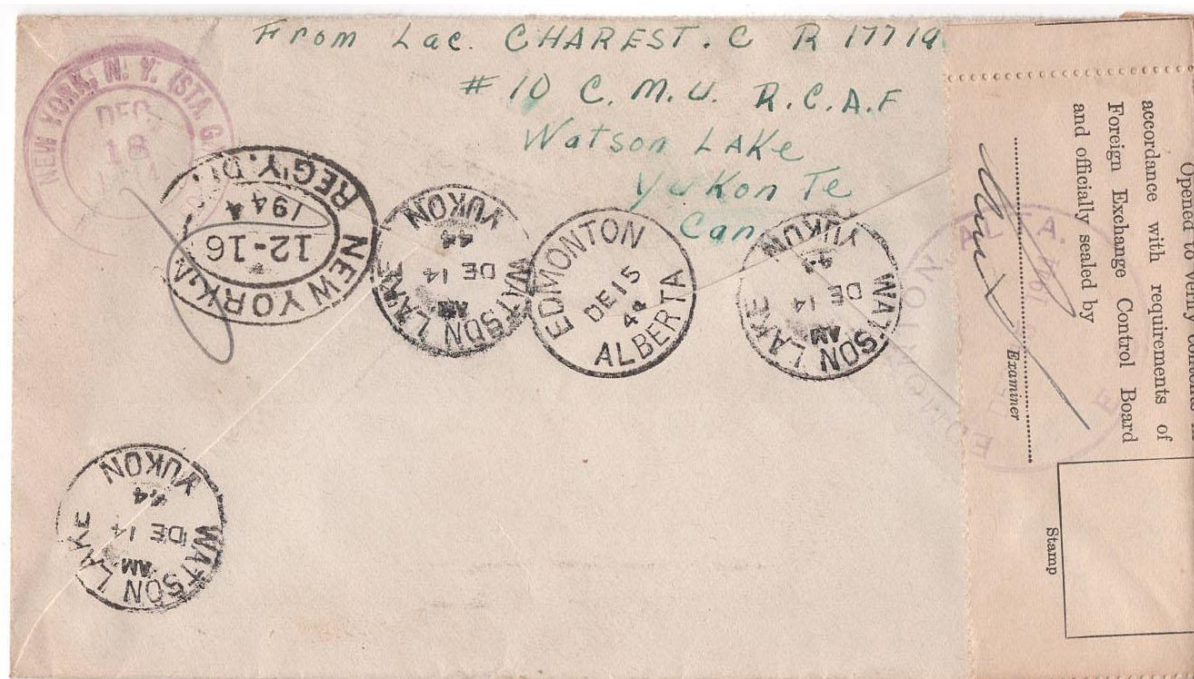 From Lac. CHAREST. C R 177719
#10 C. M. U. R.C.A.F
Watson LAKe
Yukon Te
Can
NEW YORK, N. Y. (STA. G
DEC
18
NEW YORK, N.
REG'Y. DI
12-16
1944
WATSON LAKE
AM
DE 14
44
YUKON
EDMONTON
DE 15
44
ALBERTA
WATSON LAKE
AM
DE 14
44
YUKON
WATSON LAKE
AM
DE 14
44
YUKON
EDMONTON ALTA.
Opened to verify contents
accordance with requirements of
Foreign Exchange Control Board
and officially sealed by
Examiner
Stamp